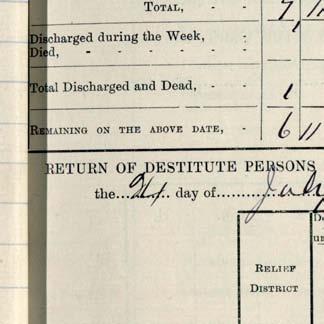 TOTAL, - - 7
Discharged during the Week, - - 1
Died, - - - -
Total Discharged and Dead, - - 1
REMAINING ON THE ABOVE DATE, - 6 11
RETURN OF DESTITUTE PERSONS
the...24... day of
RELIEF
DISTRICT